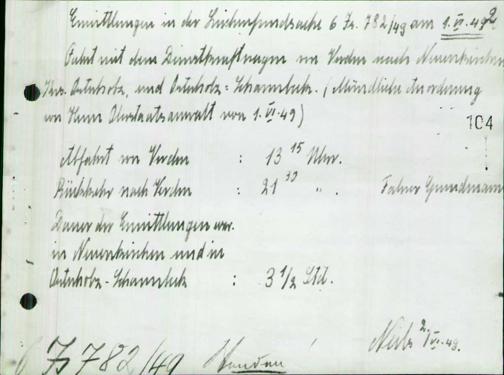 Ermittlungen in der Leichenfundsache 6 Js. 782/49 am 1. VI. 49
Fahrt mit dem Dienstkraftwagen von Verden nach Neuenkirchen
Krs. Osterholz, und Osterholz-Scharmbeck. (Mündliche Anordnung
von Herrn Oberstaatsanwalt von 1. VI. 49)
104
Abfahrt von Verden : 13 15 Uhr.
Rückkehr nach Verden : 21 30 " . Fahrer Grundmann
Dauer der Ermittlungen
in Neuenkirchen und in
Osterholz-Scharmbeck : 3 1/2 Std.
2. VI. 49.
6 Js 782/49